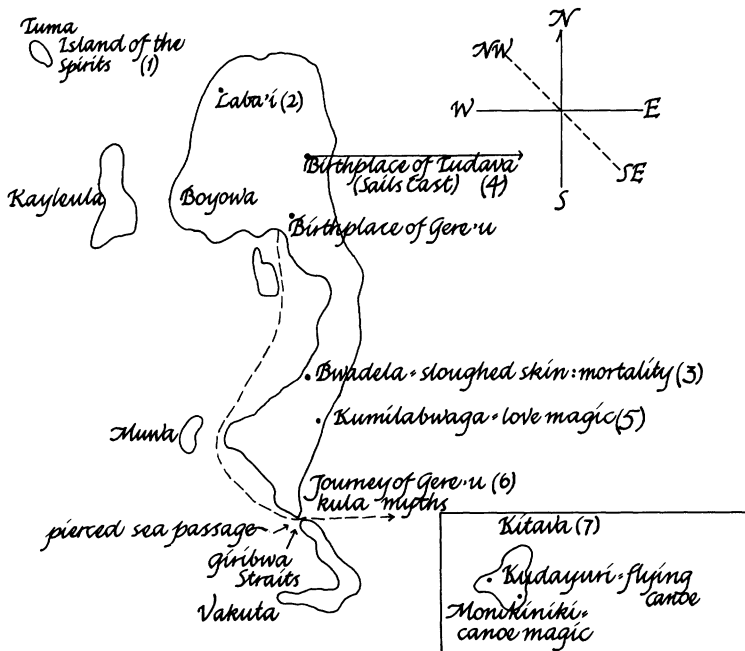 Tuma
Island of the
Spirits (1)
Laba'i (2)
Kayleula
Boyowa
Birthplace of Tudava
(Sails East) (4)
Birthplace of Gere'u
N
NW
W
E
SE
S
Bwadela = sloughed skin: mortality (3)
Kumilabwaga = love magic (5)
Muwa
Journey of Gere'u (6)
kula myths
pierced sea passage
Giribwa
Straits
Vakuta
Kitava (7)
Kudayuri = flying
canoe
Monikiniki =
canoe magic